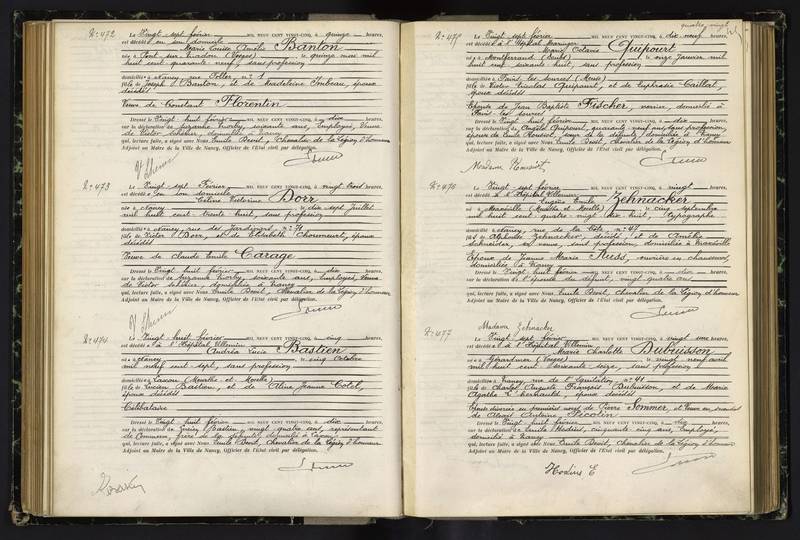 N° 472
Le Vingt sept février MIL NEUF CENT VINGT-CINQ, à quinze heures,
est décédé en son domicile
Marie Louise Amélie Banton
né à Pont sur Madon (Vosges) le quinze mai mil
huit cent quarante neuf, sans profession
domicilié à Nancy, rue N° 1
fille de Joseph Banton, et de Madeleine Imbeau, époux
décédés
Veuve de Constant Florentin
Dressé le Vingt huit février MIL NEUF CENT VINGT-CINQ, à dix heures,
sur la déclaration de Suzanne soixante ans, Employée, Veuve
de Victor domiciliée à Nancy
qui, lecture faite, a signé avec Nous Emile Chevalier de la Légion d'honneur
Adjoint au Maire de la Ville de Nancy, Officier de l'Etat civil par délégation.
N° 473
Le Vingt-sept Février MIL NEUF CENT VINGT-CINQ, à vingt trois heures,
est décédé en son domicile
Céline Victorine Dorr
né à Nancy le dix sept Juillet
mil huit cent trente huit, sans profession
domicilié à Nancy, rue des Jardiniers, N° 71
fille de Victor Dorr, et de Elisabeth époux
décédés
Veuve de Claude Emile Carage
Dressé le Vingt huit février MIL NEUF CENT VINGT-CINQ, à dix heures,
sur la déclaration de Suzanne soixante ans, Employée, Veuve
de Victor domiciliée à Nancy
qui, lecture faite, a signé avec Nous Emile Chevalier de la Légion d'honneur
Adjoint au Maire de la Ville de Nancy, Officier de l'Etat civil par délégation.
N° 474
Le Vingt huit février MIL NEUF CENT VINGT-CINQ, à cinq heures,
est décédé à l'Hôpital Villemin
Andréa Lucie Bastien
né à Nancy le cinq Octobre
mil neuf cent sept, sans profession
domicilié à Laxou (Meurthe et Moselle)
fille de Lucien Bastien, et de Aline Jeanne Colel,
époux décédés
Célibataire
Dressé le Vingt huit février MIL NEUF CENT VINGT-CINQ, à dix heures,
sur la déclaration de Bastien, vingt quatre ans, représentant
de Commerce, frère de la défunte, domicilié à Laxou
qui, lecture faite, a signé avec Nous Emile Chevalier de la Légion d'honneur
Adjoint au Maire de la Ville de Nancy, Officier de l'Etat civil par délégation.
quatre vingt
N° 475
Le Vingt sept février MIL NEUF CENT VINGT-CINQ, à dix neuf heures,
est décédé à l'Hôpital Maringer
Marie Octavie Guipourt
né à Montferrand (Doubs) le onze Janvier mil
huit cent soixante huit, sans profession
domicilié à (Meuse)
fille de Nicolas Guipourt, et de Euphrasie Caillat,
époux décédés
Epouse de Jean Baptiste Fischer, domicilié à
Dressé le Vingt huit février MIL NEUF CENT VINGT-CINQ, à dix heures,
sur la déclaration de Angèle Guipourt, quarante neuf ans, sans profession,
domiciliée à Nancy
qui, lecture faite, a signé avec Nous Emile Chevalier de la Légion d'honneur
Adjoint au Maire de la Ville de Nancy, Officier de l'Etat civil par délégation.
N° 476
Le Vingt-sept février MIL NEUF CENT VINGT-CINQ, à vingt heures,
est décédé à l'Hôpital Villemin
Eugène Emile Zehnacker
né à Maxéville (Meurthe et Moselle) le cinq septembre
mil huit cent quatre-vingt dix huit, typographe
domicilié à Nancy, rue de la Côte, N° 47
fils de Alphonse Zehnacker, décédé, et de Amélie
Schneider, sa veuve, sans profession, domiciliée à Maxéville
Epoux de Jeanne Marie Russ, ouvrière en chaussures,
domiciliée à Nancy
Dressé le Vingt huit février MIL NEUF CENT VINGT-CINQ, à dix heures,
sur la déclaration de l'épouse du défunt, vingt quatre ans
qui, lecture faite, a signé avec Nous Emile Chevalier de la Légion d'honneur
Adjoint au Maire de la Ville de Nancy, Officier de l'Etat civil par délégation.
Madame Zehnacker
N° 477
Le Vingt sept février MIL NEUF CENT VINGT-CINQ, à vingt une heures,
est décédé à l'Hôpital Villemin
Marie Charlotte Dubuisson
né à Gérardmer (Vosges) le vingt neuf avril
mil huit cent soixante seize, sans profession
domicilié à Nancy, rue de l'Equitation, N° 41
fille de Charles Auguste François Dubuisson, et de Marie
Agathe époux décédés
Epouse divorcée en premières noces de Pierre Sommer, et Veuve en secondes
de Antoine
Dressé le Vingt huit février MIL NEUF CENT VINGT-CINQ, à dix heures,
sur la déclaration de Emile Hodius, cinquante cinq ans, Employé,
domicilié à Nancy
qui, lecture faite, a signé avec Nous Emile Chevalier de la Légion d'honneur
Adjoint au Maire de la Ville de Nancy, Officier de l'Etat civil par délégation.
Hodius E